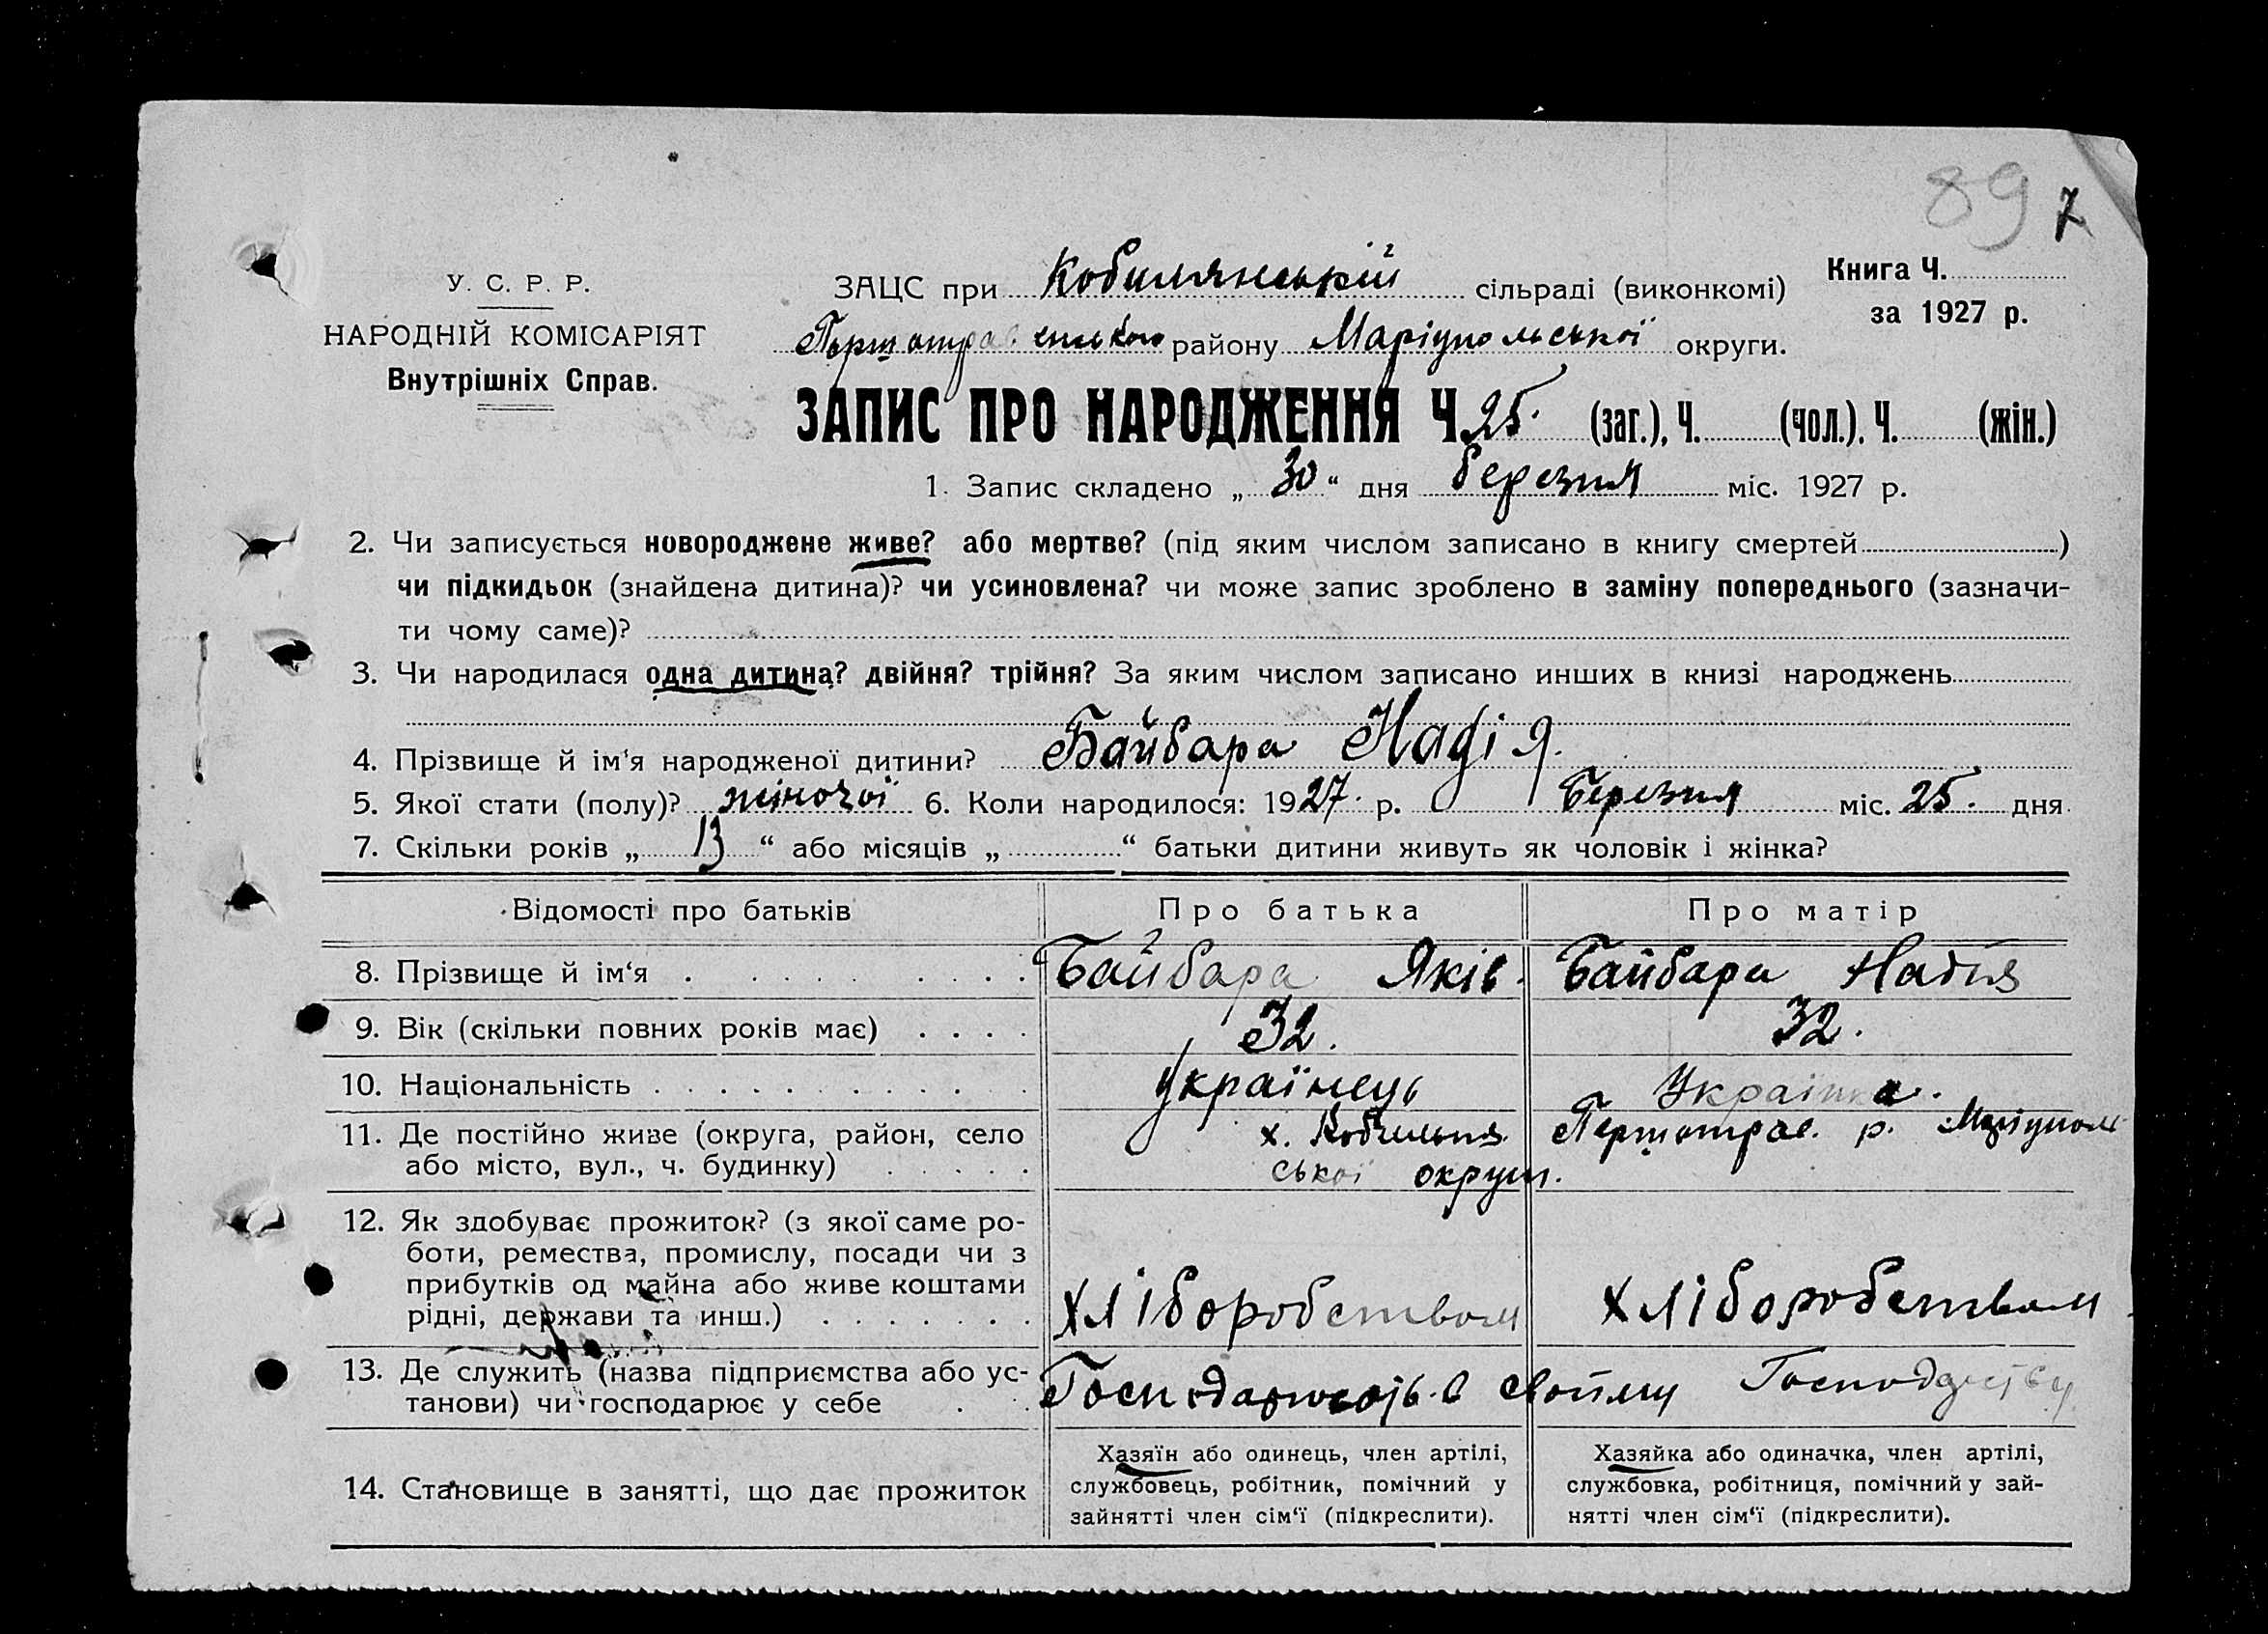 89 7
У. С. Р. Р.
НАРОДНІЙ КОМІСАРІЯТ
Внутрішніх Справ.
ЗАЦС при Кобилянській сільраді (виконкомі)
Першотравенського району Маріупольської округи.
Книга Ч.
за 1927 р.
ЗАПИС ПРО НАРОДЖЕННЯ Ч. 25. (заг.), Ч. (чол.), Ч. (жін.)
1. Запис складено „ 30 “ дня березня міс. 1927 р.
2. Чи записується новороджене живе? або мертве? (під яким числом записано в книгу смертей )
чи підкидьок (знайдена дитина)? чи усиновлена? чи може запис зроблено в заміну попереднього (зазначи-
ти чому саме)?
3. Чи народилася одна дитина? двійня? трійня? За яким числом записано инших в книзі народжень
4. Прізвище й ім‘я народженої дитини? Байбара Надія.
5. Якої стати (полу)? жіночої 6. Коли народилося: 1927. р. Березня міс. 25. дня
7. Скільки років „ 13 “ або місяців „ “ батьки дитини живуть як чоловік і жінка?
Відомості про батьків Про батька Про матір
8. Прізвище й ім‘я Байбара Яків. Байбара Надія
9. Вік (скільки повних років має) 32. 32.
10. Національність Українець Українка.
11. Де постійно живе (округа, район, село х. Першотрав. р. Маріуполь
або місто, вул., ч. будинку) ської округи.
12. Як здобуває прожиток? (з якої саме ро-
боти, ремества, промислу, посади чи з
прибутків од майна або живе коштами
рідні, держави та инш.) хліборобством хліборобством
13. Де служить (назва підприємства або ус-
танови) чи господарює у себе Господарюють в своїму Господарстві
14. Становище в занятті, що дає прожиток
Хазяїн або одинець, член артілі,
службовець, робітник, помічний у
зайнятті член сім‘ї (підкреслити).
Хазяйка або одиначка, член артілі,
службовка, робітниця, помічний у зай-
нятті член сім‘ї (підкреслити).